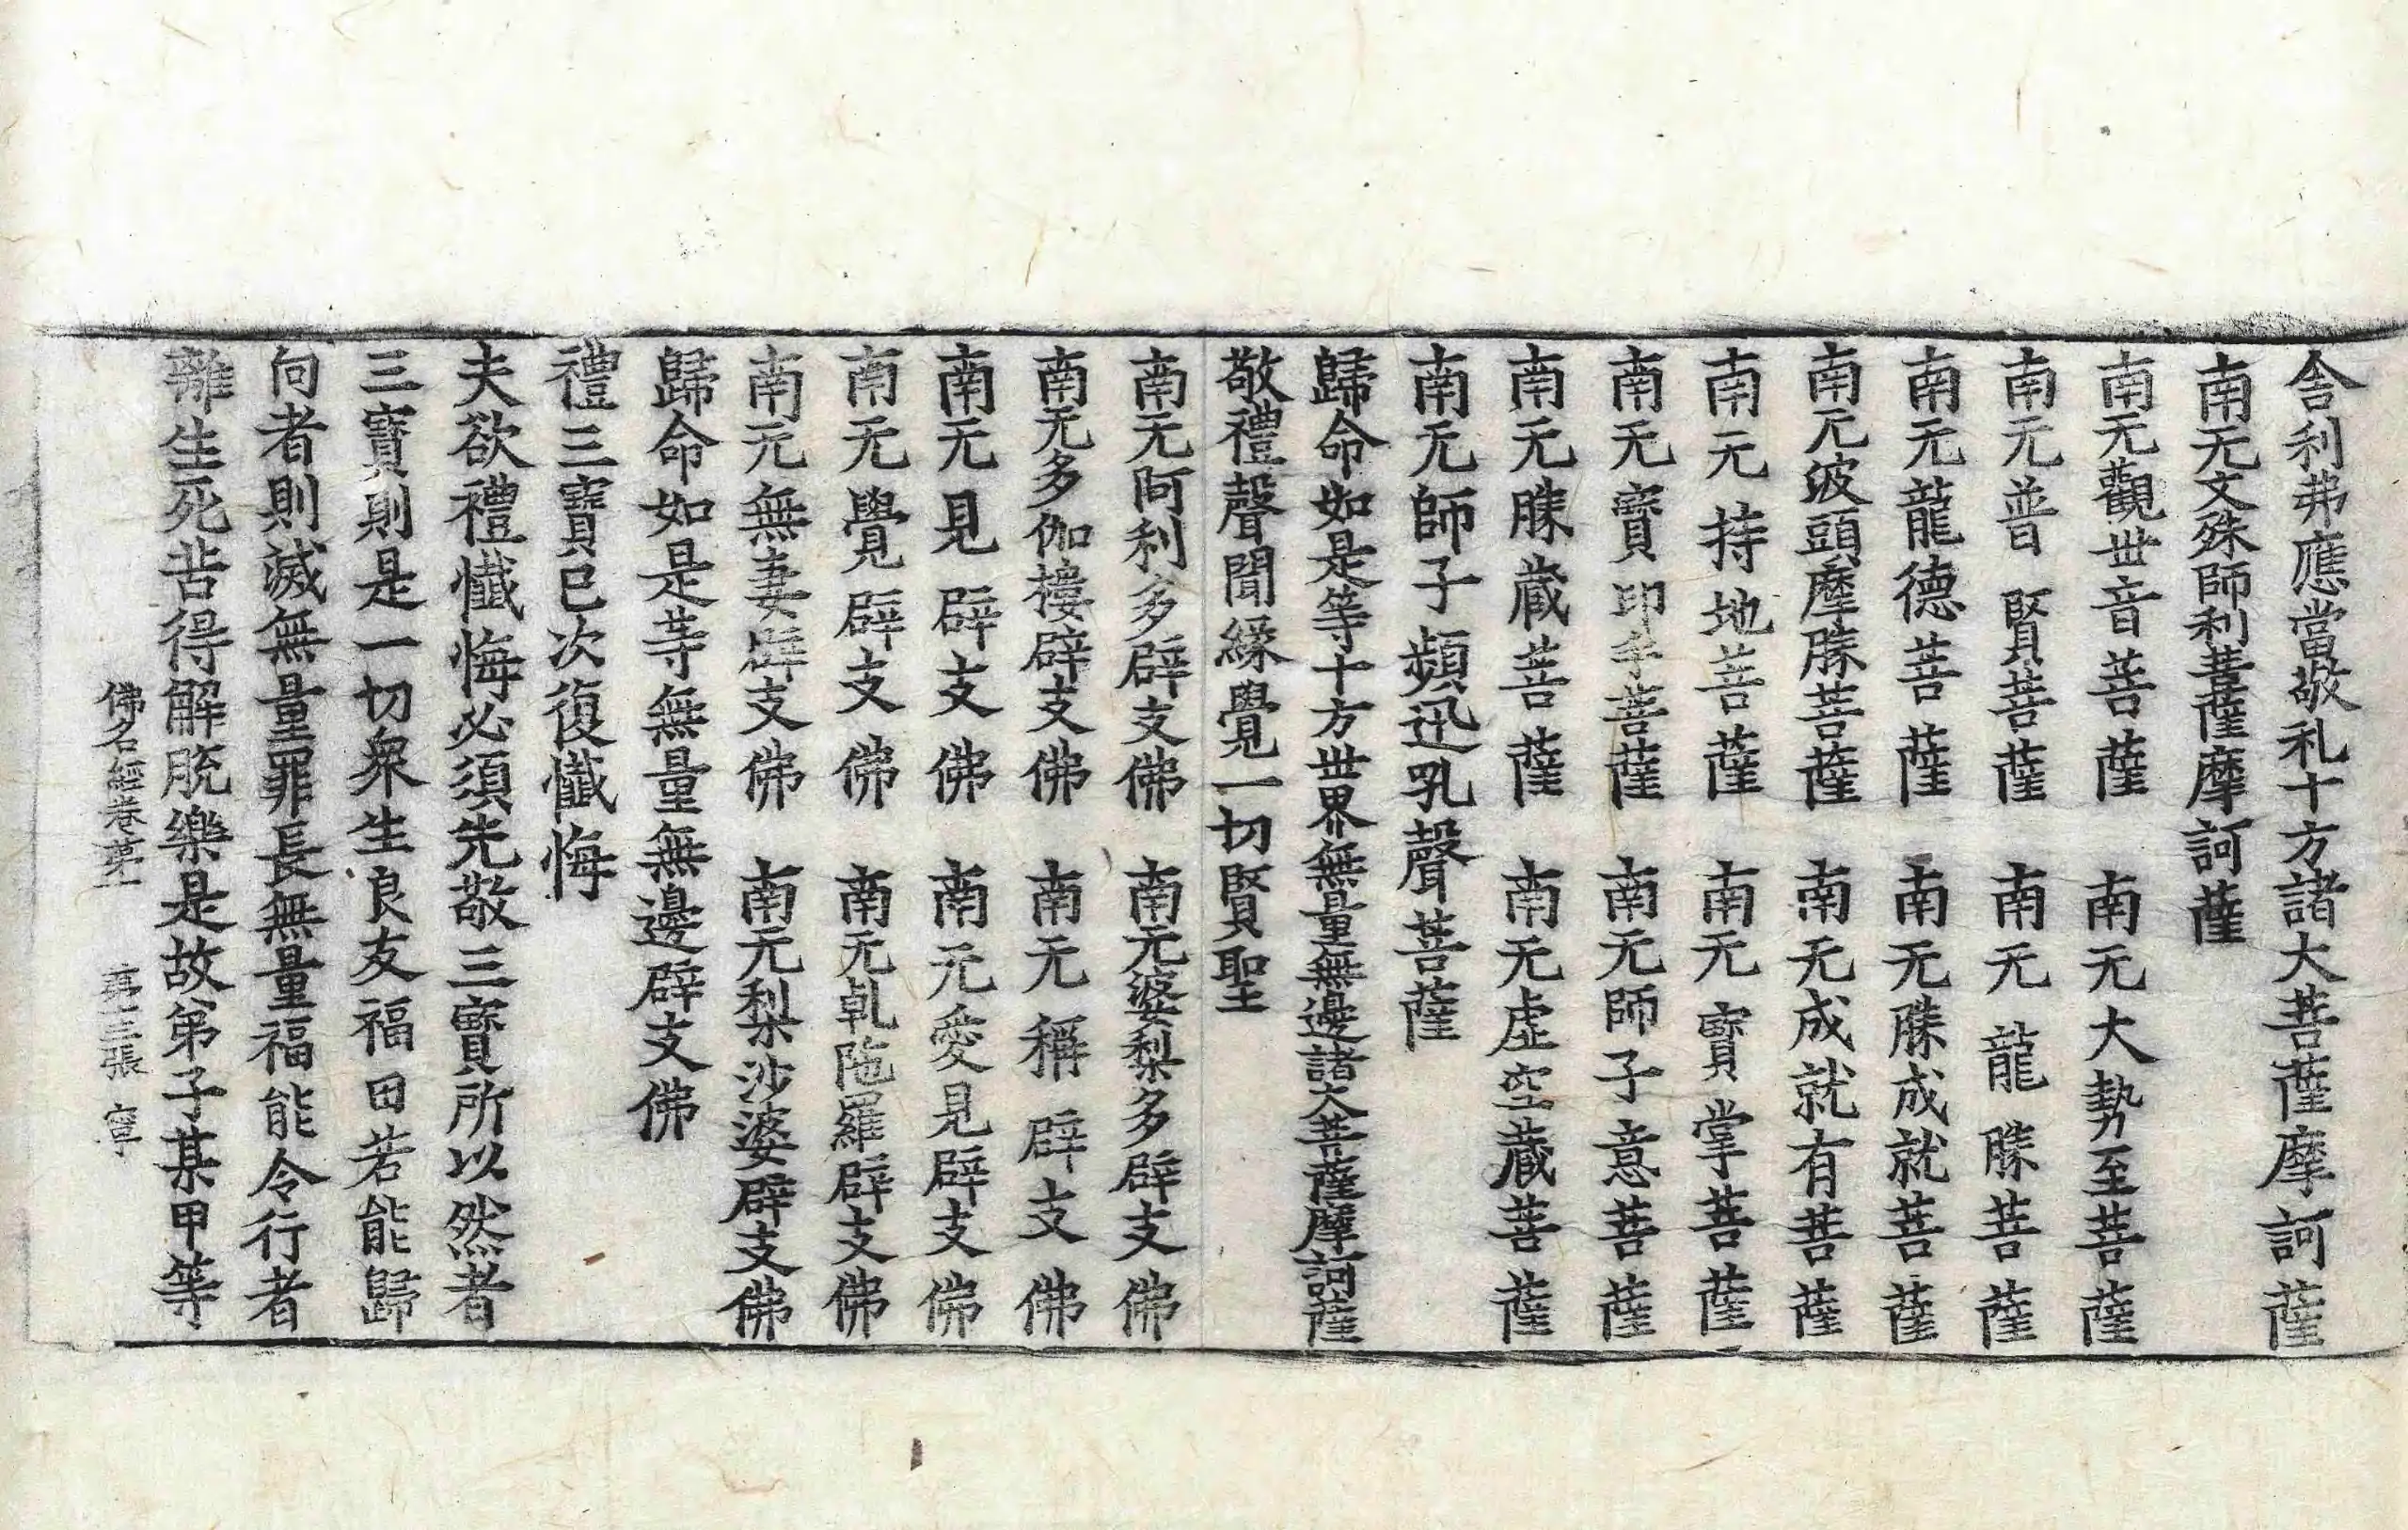 舍利弗應當敬礼十方諸大菩薩摩訶薩
南无文殊師利菩薩摩訶薩
南无觀世音菩薩 南无大勢至菩薩
南无普賢菩薩 南无龍勝菩薩
南无龍德菩薩 南无勝成就菩薩
南无波頭摩勝菩薩 南无成就有菩薩
南无持地菩薩 南无寶掌菩薩
南无寶印手菩薩 南无師子意菩薩
南无勝藏菩薩 南无虛空藏菩薩
南无師子頻迅吼聲菩薩
歸命如是等十方世界無量無邊諸大菩薩摩訶薩
敬禮聲聞緣覺一切賢聖
南无阿利多辟支佛 南无婆梨多辟支佛
南无多伽樓辟支佛 南无稱辟支佛
南无見辟支佛 南无愛見辟支佛
南无覺辟支佛 南无乹陁羅辟支佛
南无無妻辟支佛 南无梨沙婆辟支佛
歸命如是等無量無邊辟支佛
禮三寶已次復懺悔
夫欲禮懺悔必須先敬三寶所以然者
三寶則是一切衆生良友福田若能歸
向者則滅無量罪長無量福能令行者
離生死苦得解脫樂是故第子某甲等
佛名經卷苐一 苐十三張 寧